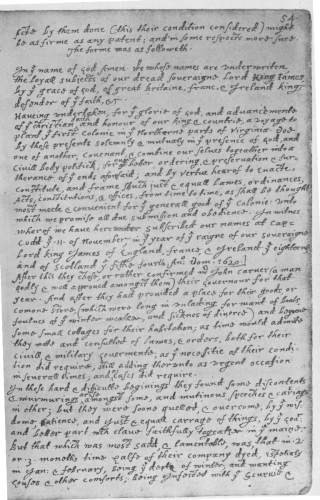 54
facte by them done (this their condition considered) might
be as firme as any patent; and in some respects more sure.
The forme was as followeth.
In y^e name of god Amen. We whose names are underwriten,
the loyall subjects of our dread soveraigne Lord King James
by y^e grace of god, of great Britaine, franc, & Ireland king,
defender of y^e faith, &c.
Haveing undertaken, for y^e glorie of god, and advancemente
of y^e christian faith and honour of our king & countrie, a voyage to
plant y^e first colonie in y^e Northerne parts of Virginia. Doe
by these presents solemnly & mutualy in y^e presence of god, and
one of another, covenant, & combine our selves togeather into a
civill body politick; for our better ordering, & preservation & fur-
therance of y^e ends aforesaid; and by vertue hearof to enacte,
constitute, and frame shuch just & equall lawes, ordinances,
Acts, constitutions, & offices, from time to time, as shall be thought
most meete & convenient for y^e generall good of y^e colonie: unto
which we promise all due submission and obedience. In witnes
wherof we have hereunder subscribed our names at Cap-
Codd y^e .11. of November, in y^e year of y^e raigne of our soveraigne
Lord king James of England, franc, & Ireland y^e eighteenth
and of Scotland y^e fiftie fourth. Ano: Dom. 1620.
After this they chose, or rather confirmed m^r John Carver (a man
godly & well approved amongst them) their Governour for that
year. And after they had provided a place for their goods, or
comone store, (which were long in unlading for want of boats,
foulnes of y^e winter weather, and sicknes of diverce) and begune
some small cottages for their habitation; as time would admitte
they mette and consulted of lawes, & orders, both for their
civill & military Govermente, as y^e necessitie of their condi-
tion did require, still adding therunto as urgent occasion
in severall times, and as cases did require.
In these hard & difficulte beginings they found some discontents
& murmurings arise amongst some, and mutinous speeches & carriags
in other; but they were soone quelled, & overcome, by y^e wis-
dome, patience, and just & equall carrage of things, by y^e Gov^r
and better part w^ch clave faithfully togeather in y^e maine.
But that which was most sadd, & lamentable, was, that in .2.
or .3. moneths time halfe of their company dyed, espetialy
in Jan: & february, being y^e depth of winter, and wanting
houses & other comforts; being infected with y^e scurvie &